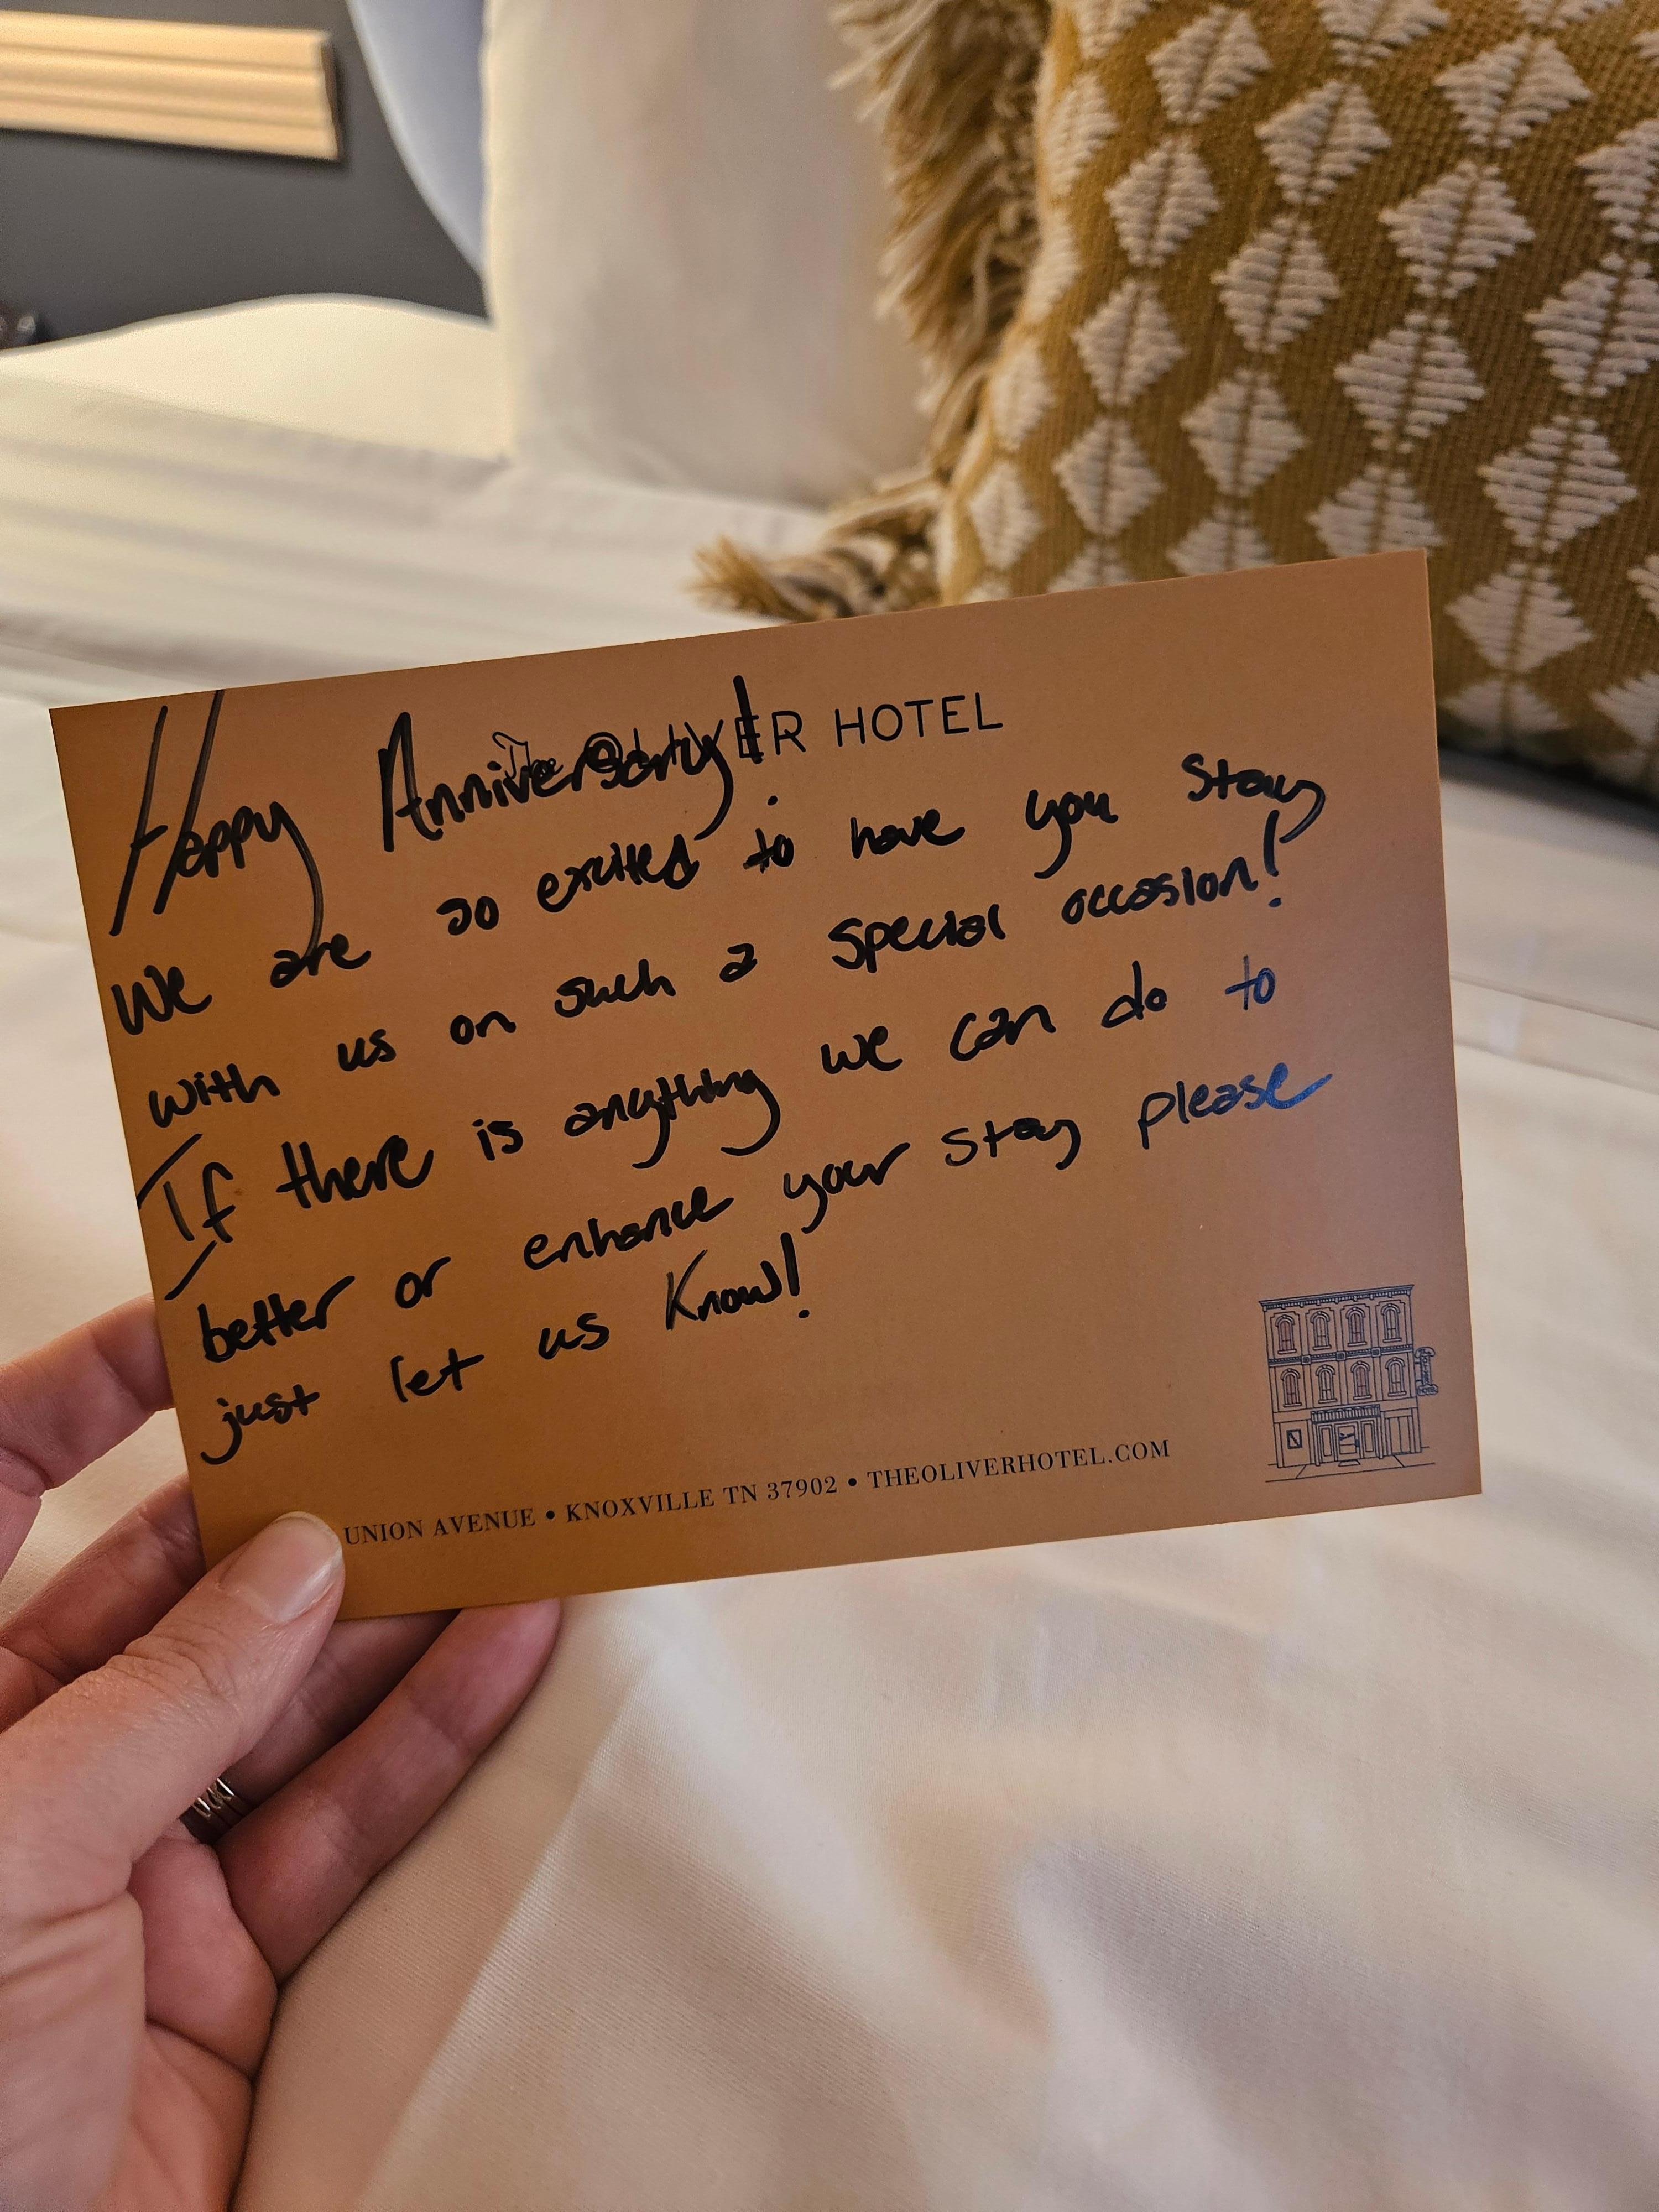 The OLIVER HOTEL
Happy Anniversary!
We are so excited to have you stay
with us on such a special occasion!
If there is anything we can do to
better or enhance your stay please
just let us know!
UNION AVENUE • KNOXVILLE TN 37902 • THEOLIVERHOTEL.COM